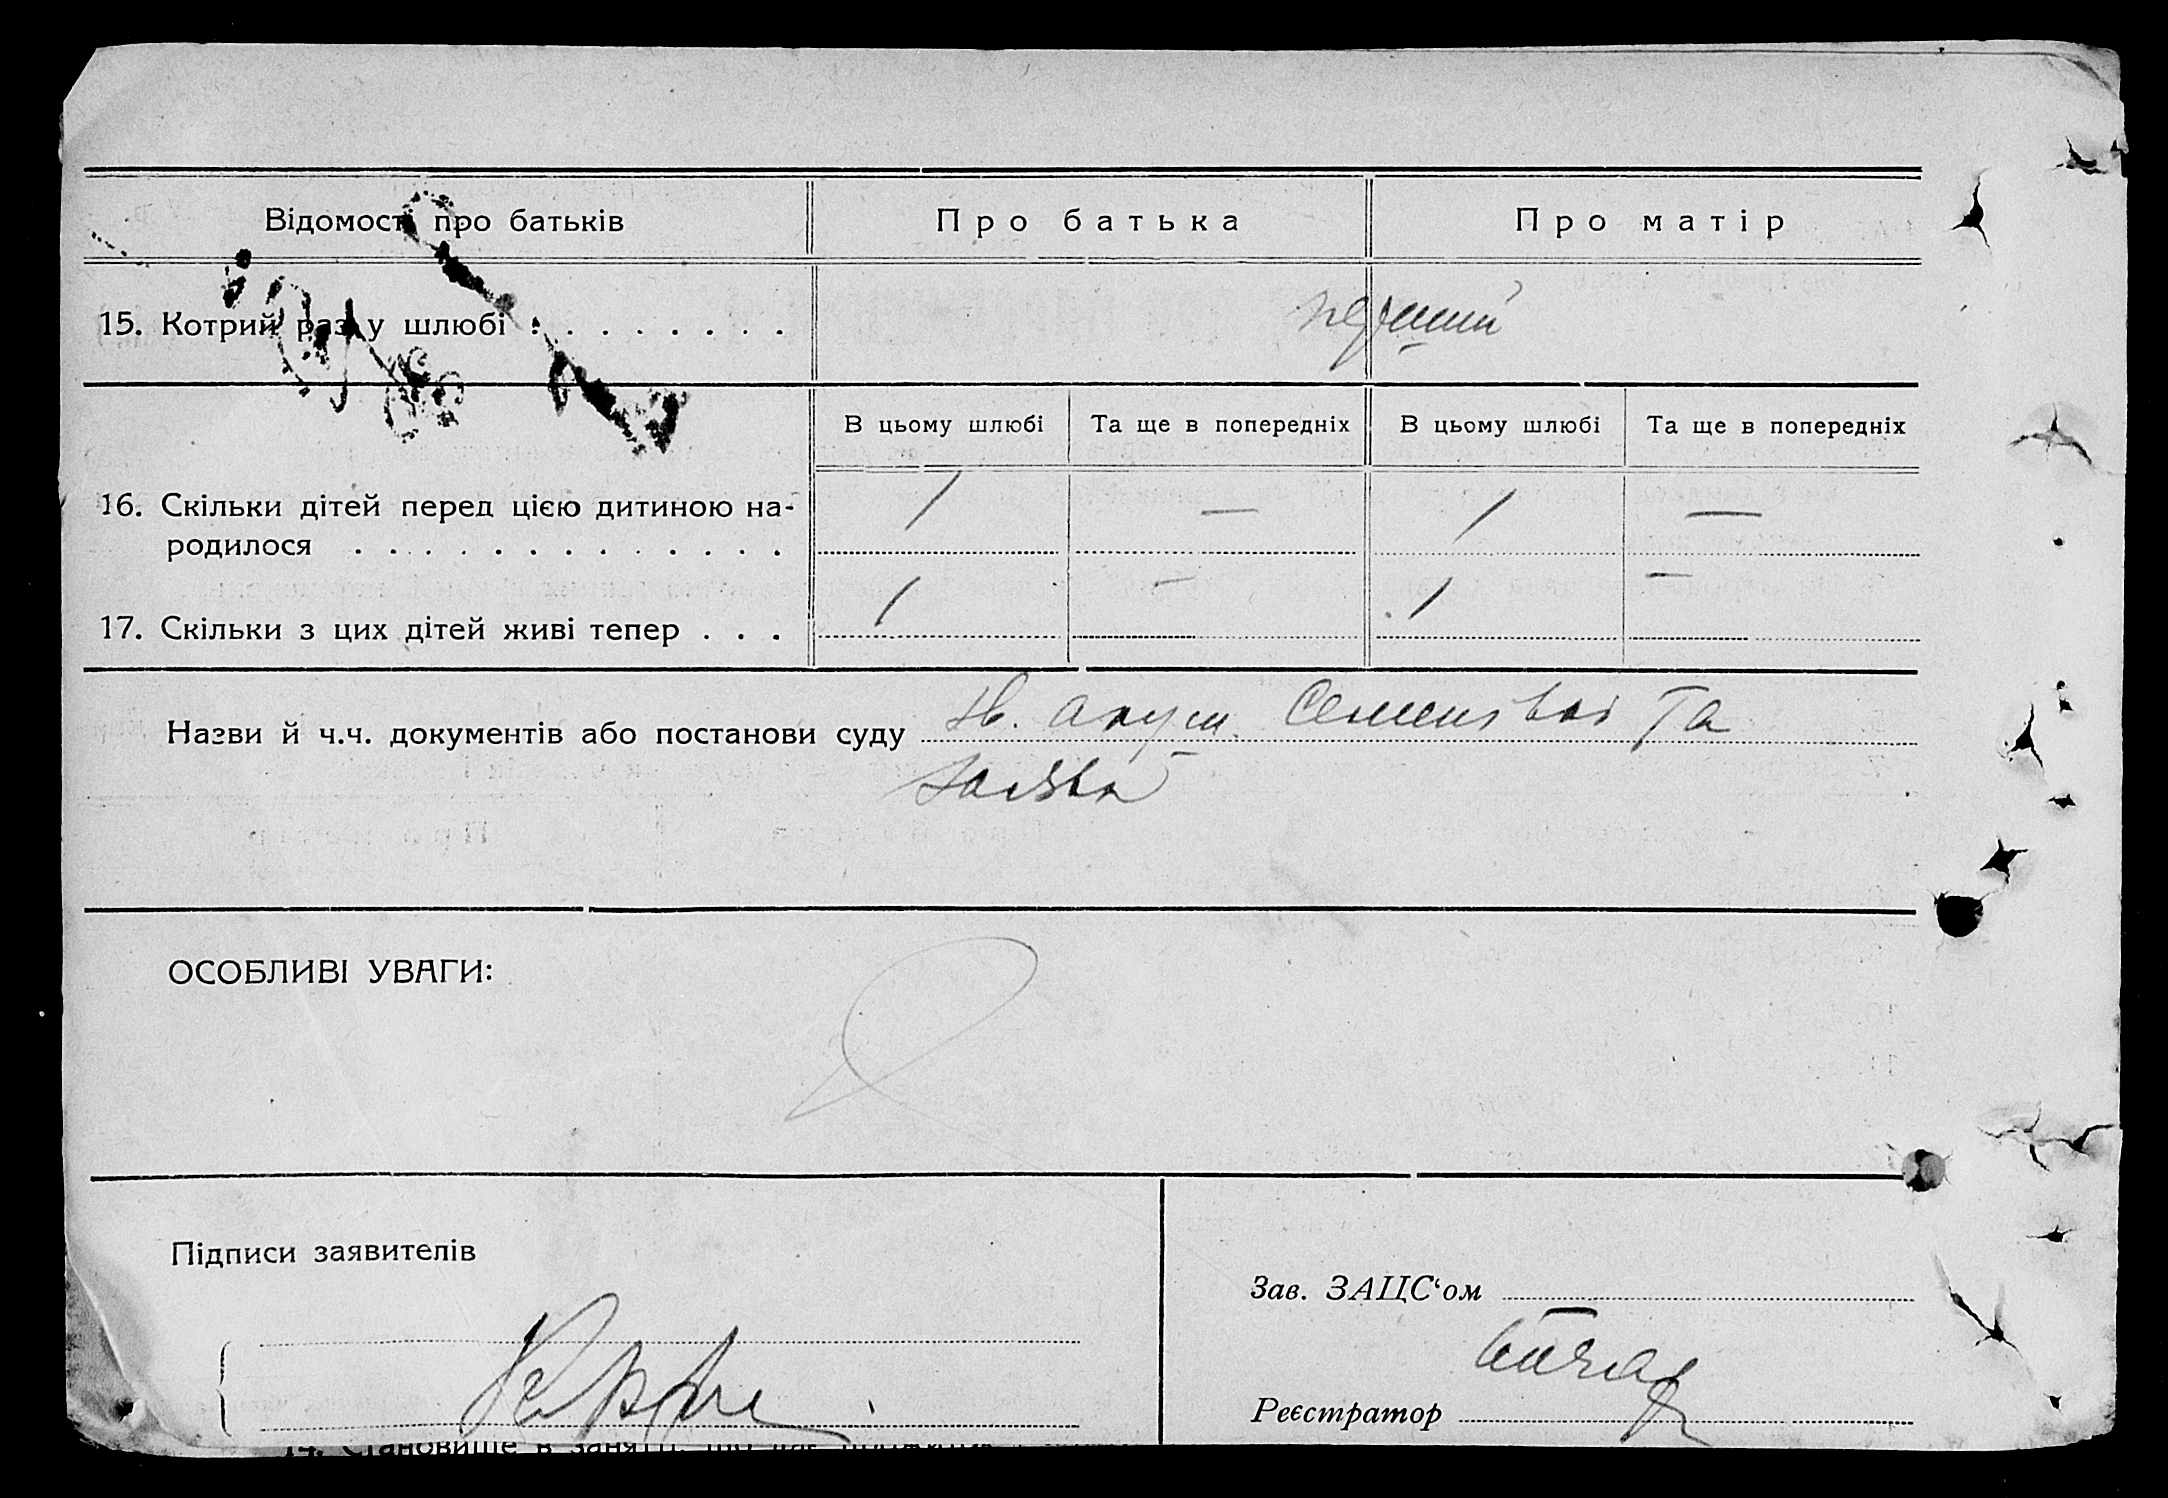 Відомості про батьків
Про батька
Про матір
15. Котрий раз у шлюбі . . . . . . . . .
перший
В цьому шлюбі
Та ще в попередніх
В цьому шлюбі
Та ще в попередніх
16. Скільки дітей перед цією дитиною на-
родилося . . . . . . . . . . . . . .
1 — 1 —
17. Скільки з цих дітей живі тепер . . .
1 — 1 —
Назви й ч.ч. документів або постанови суду
та
заява
ОСОБЛИВІ УВАГИ:
Підписи заявителів
Зав. ЗАЦС‘ом
Реєстратор
14. Становище в занятті, що дає